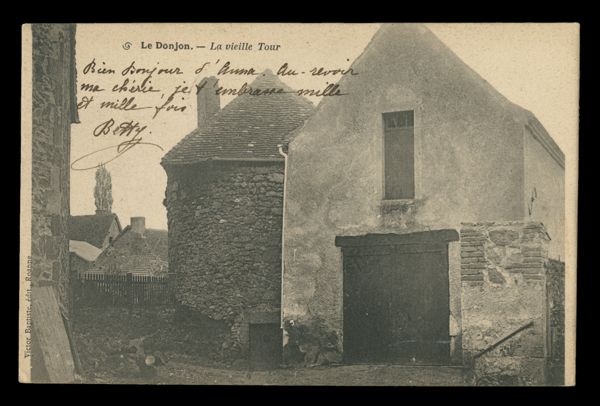 Le Donjon. — La vieille Tour
Bien Bonjour d'Anna. Au-revoir
ma chérie, je t'embrasse mille
et mille fois
Betty.
Victor Barnoux, édit., Roanne